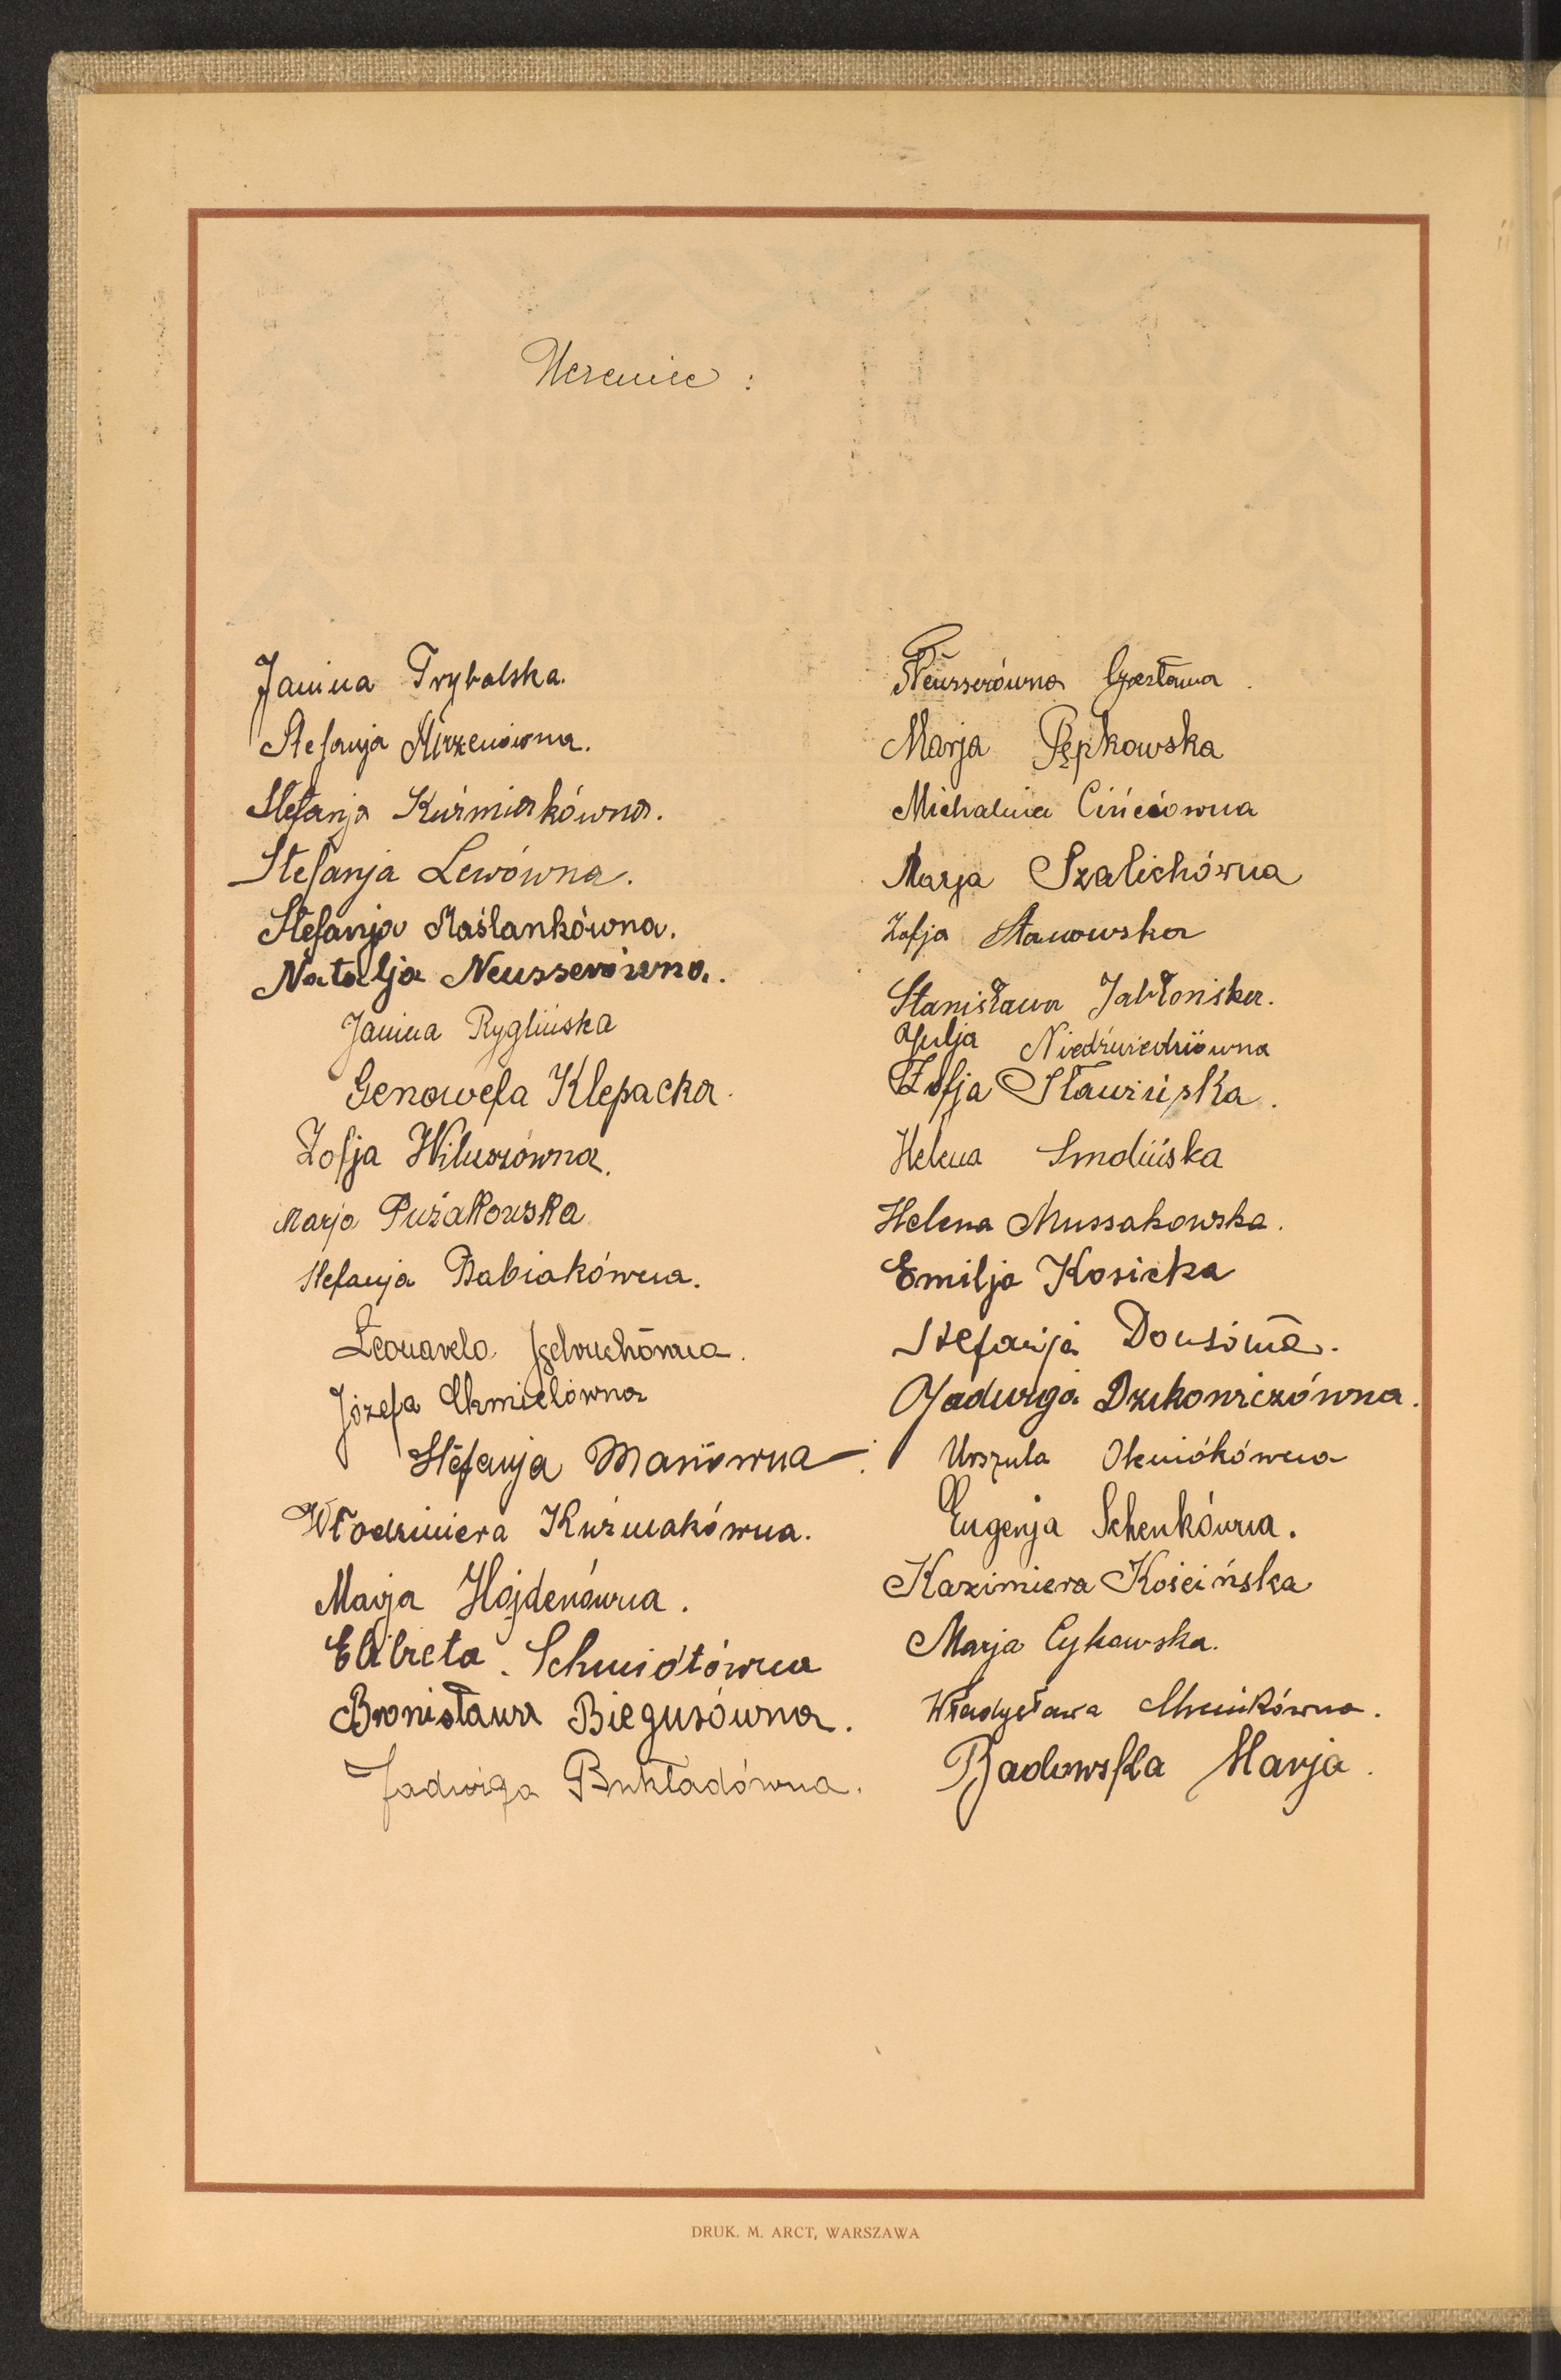 Uczenice :
Janina Trybalska.
Stefanja
Stefanja Kuźmiakówna.
Stefanja Lewówna.
Stefanja Maślankówna.
Natalja Neusserówna.
Janina Ryglińska
Genowefa Klepacka.
Zofja Wiluszówna.
Marja Pużakowska
Stefanja Babiakówna.
Józefa Chmielówna
Stefanja Maniówna
Włodzimiera Kuźmakówna.
Marja Hojdenówna.
Elżbieta Schmidtówna
Bronisława Biegusówna.
Jadwiga Bukładówna.
Neusserówna Czesława.
Marja Pępkowska
Michalina Cińciówna
Marja Szalichówna
Zofja Stanowska
Stanisława Jabłońska.
Julja Niedźwiedziówna
Zofja Sławińska.
Helena Smolińska
Helena Mussakowska.
Emilja Kosicka
Stefanja
Jadwiga Dzikowiczówna.
Urszula
Eugenja Schenkówna.
Kazimiera Kościńska
Marja Cykowska.
Władysława
Badowska Marja.
DRUK. M. ARCT, WARSZAWA